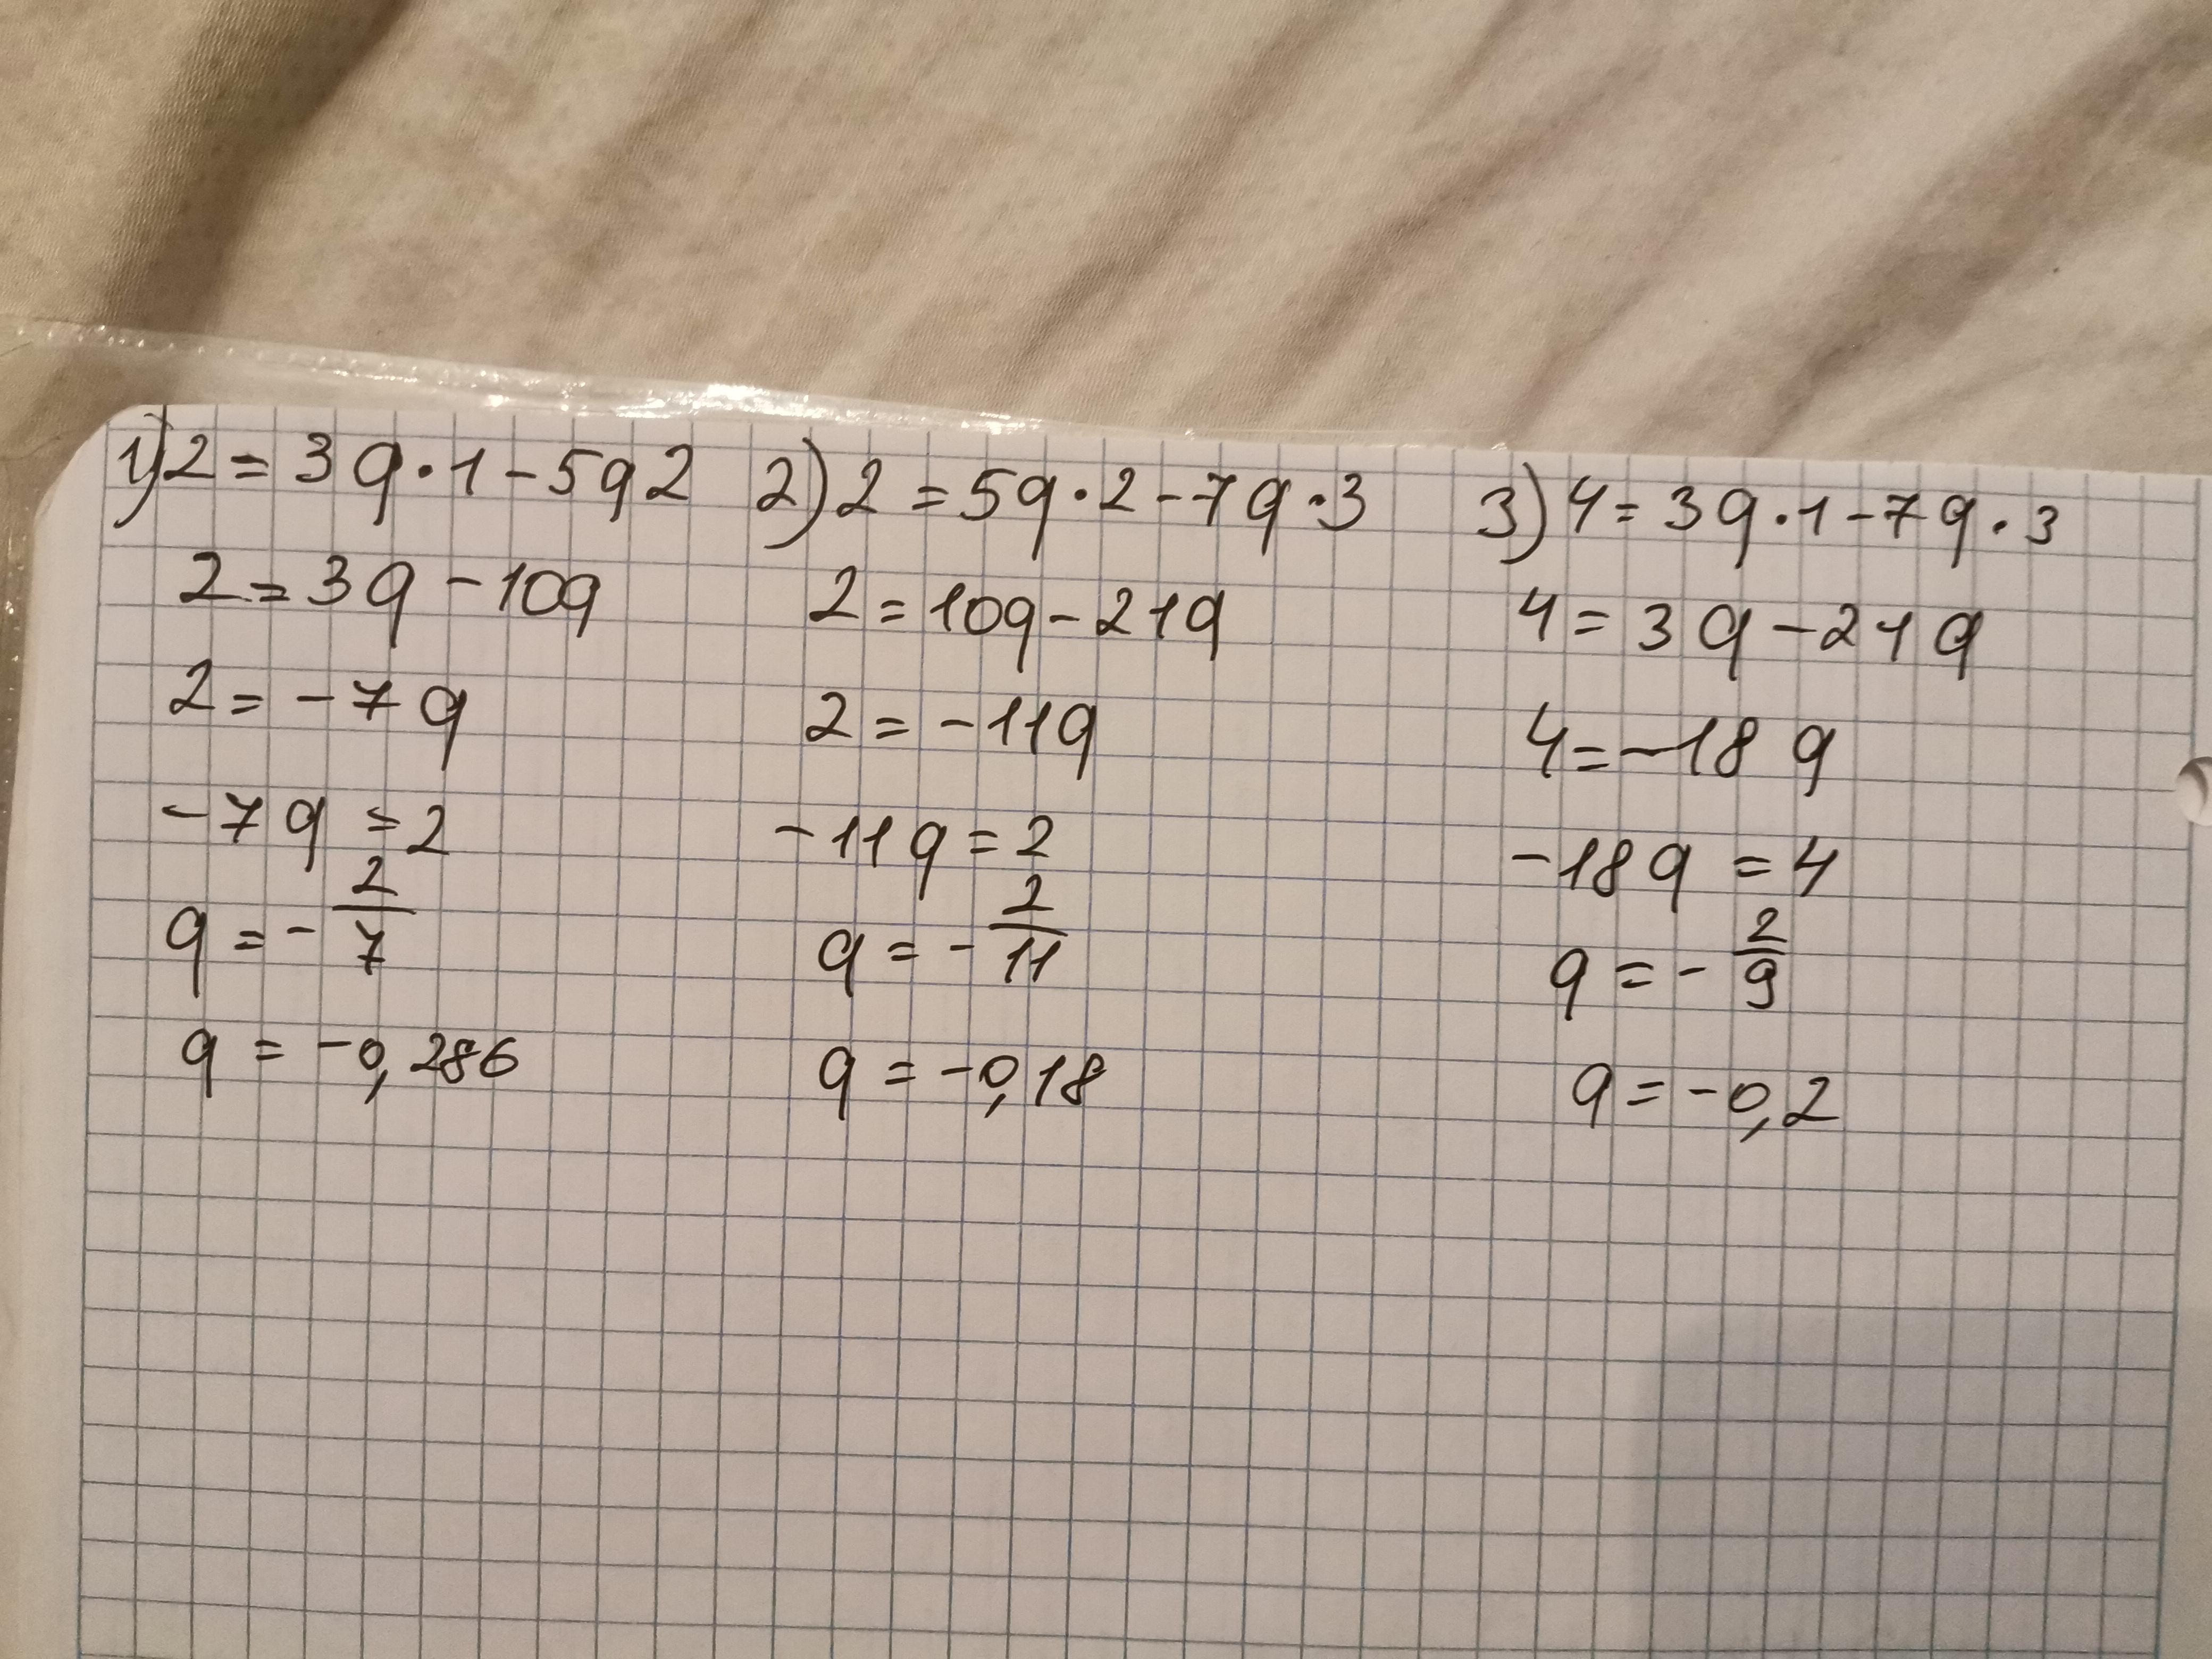 1) 2 = 3q·1 - 5q2
2 = 3q - 10q
2 = -7q
-7q = 2
q = - 2/7
q = -0,286
2) 2 = 5q·2 - 7q·3
2 = 10q - 21q
2 = -11q
-11q = 2
q = - 2/11
q = -0,18
3) 4 = 3q·1 - 7q·3
4 = 3q - 21q
4 = -18q
-18q = 4
q = - 2/9
q = -0,2